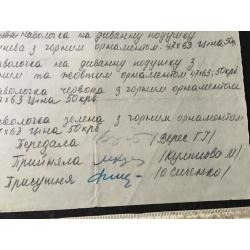 наволочка на диванну подушку
з горним орнаментом. 47х63 ціна 50
наволочка на диванну подушку з
ним та жовтим орнаментом 47х63, 50крб
наволочка червона з горним орнаментом
х63 Ціна 50крб.
наволочка зелена з горним орнаментом
х63 ціна 50крб
Передала /Верес Г.І/
Прийняла /Куликова М/
Присутня /Юсиченко/